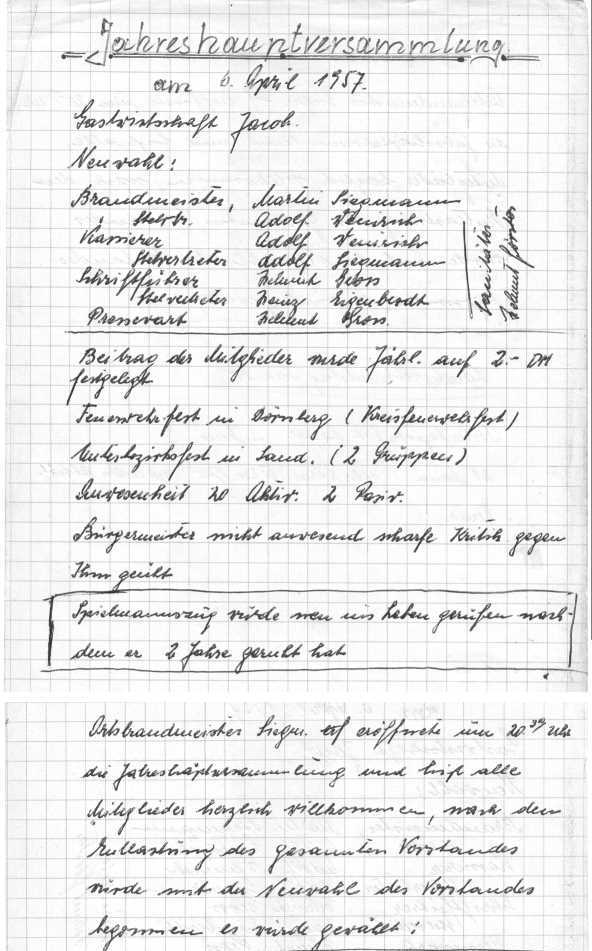 Jahreshauptversammlung
am 6. April 1957.
Gastwirtschaft Jacob.
Neuwahl:
Brandmeister, Martin Siegmann
Stelvtr. Adolf Wenrich
Kassierer Adolf Wenrich
Stelvertreter Adolf Siegmann
Schriftführer Helmut Gross
Stelvertreter Heinz Eigenbrodt
Pressewart Helmut Gross.
Sanitäter
Helmut Förster
Beitrag der Mitglieder wurde Jährl. auf 2.- DM
festgelegt
Feuerwehrfest in Dörnberg (Kreisfeuerwehrfest)
Unterbezirksfest in Sand. (2 Gruppen)
Anwesenheit 20 Aktiv. 2 Pasiv.
Bürgermeister nicht anwesend scharfe Kritik gegen
Ihm geübt
Spielmannszug würde neu ins Leben gerufen nach-
dem er 2 Jahre geruht hat
Ortsbrandmeister Siegm. eröffnete um 20.30 Uhr
die Jahreshäptversammlung und hieß alle
Mitglieder herzlich willkommen, nach den
Entlastung des gesamten Vorstandes
würde mit der Neuwahl des Vorstandes
begonnen es würde gewällt: